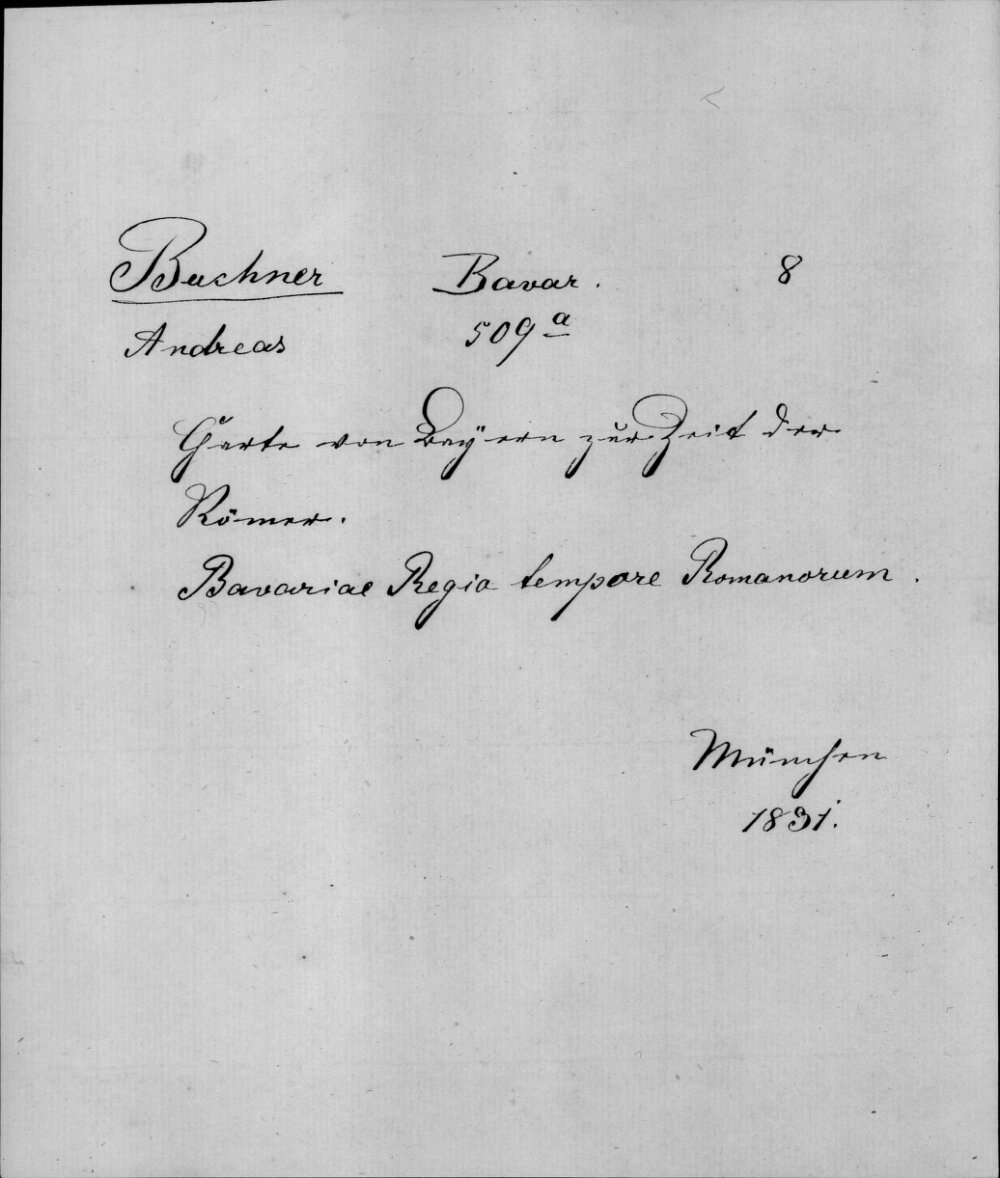 Buchner Bavar. 8
Andreas 509 a
Charte von Bayern zur Zeit der
Römer.
Bavariae Regio tempore Romanorum.
München
1831.